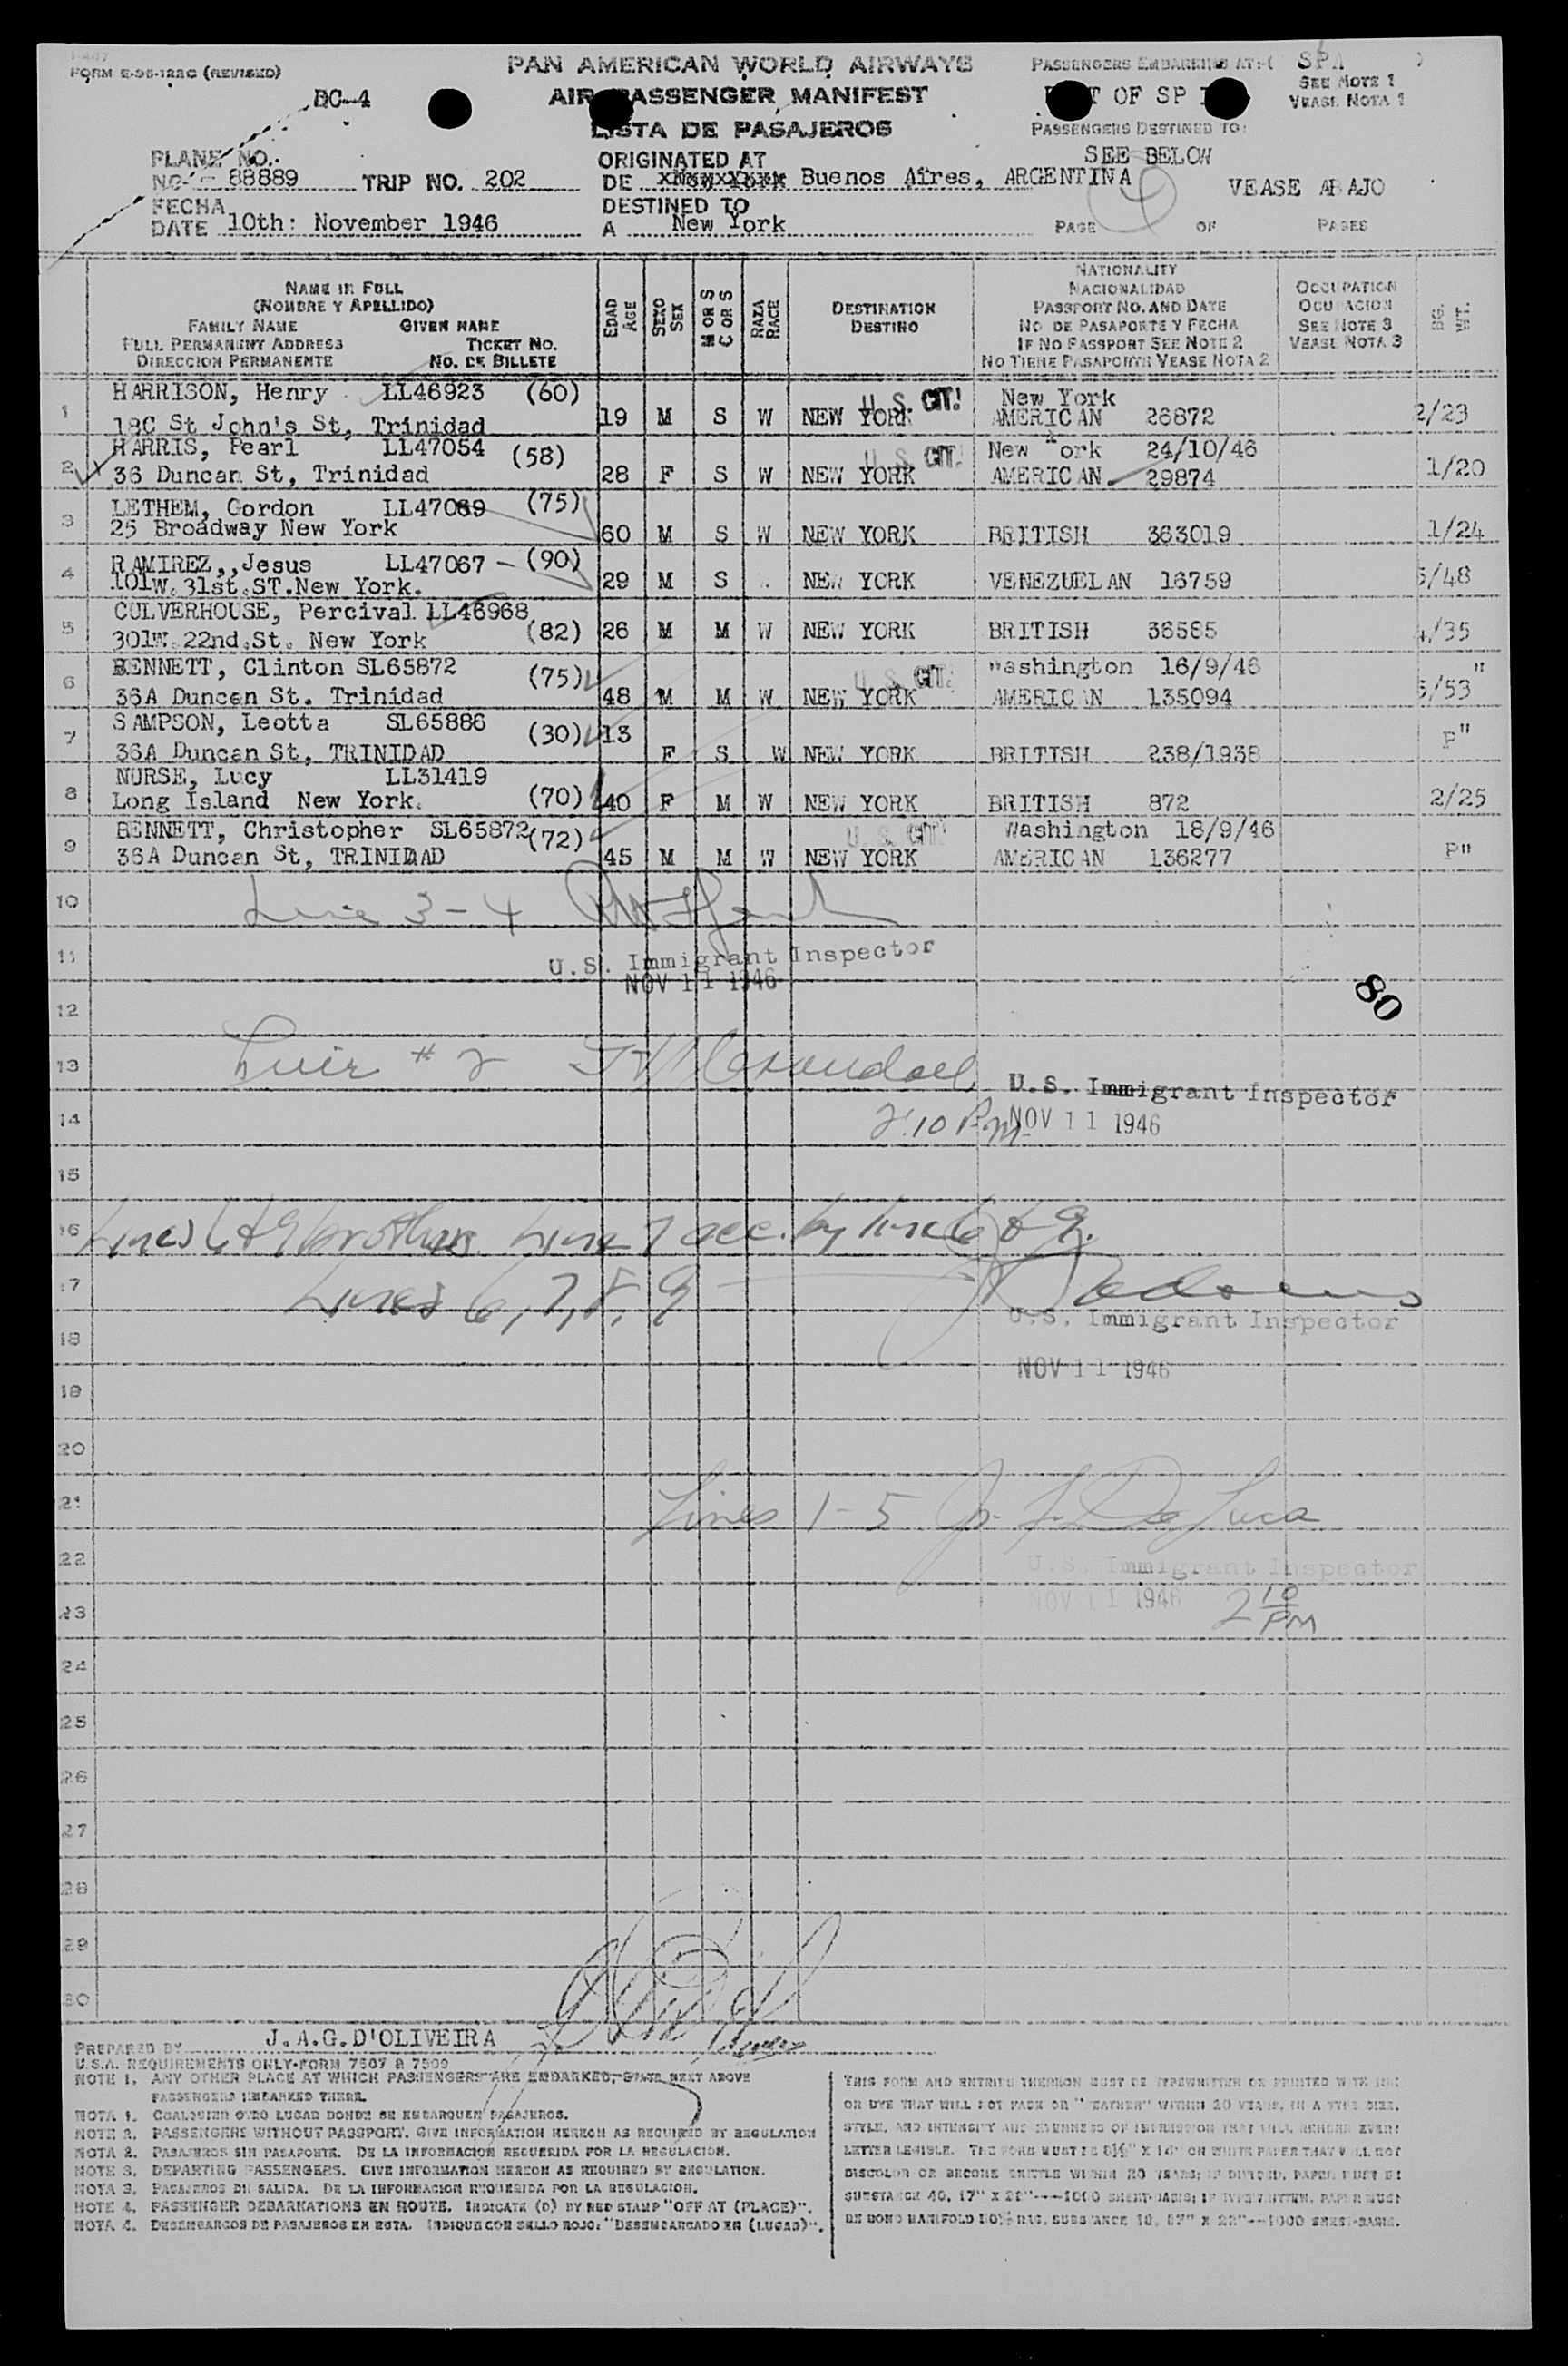 FORM E-96-122C (REVISED)
PAN AMERICAN WORLD AIRWAYS
AIR PASSENGER MANIFEST
LISTA DE PASAJEROS
PASSENGERS EMBARKING AT:-( SPA )
SEE NOTE 1
VEASE NOTA 1
DC-4
OF SP
PASSENGERS DESTINED TO:
SEE BELOW
VEASE ABAJO
PLANE NO.
NO- 88889 TRIP NO. 202
ORIGINATED AT
DE xNewxYorkx Buenos Aires, ARGENTINA
FECHA
DATE 10th: November 1946
DESTINED TO
A New York
PAGE 4 OF PAGES
NAME IN FULL
(NOMBRE Y APELLIDO)
FAMILY NAME GIVEN NAME
FULL PERMANENT ADDRESS TICKET NO.
DIRECCION PERMANENTE NO. DE BILLETE
EDAD AGE
SEXO SEX
M OR S C OR S
RAZA RACE
DESTINATION
DESTINO
NATIONALITY
NACIONALIDAD
PASSPORT NO. AND DATE
NO DE PASAPORTE Y FECHA
IF NO PASSPORT SEE NOTE 2
NO TIENE PASAPORTE VEASE NOTA 2
OCCUPATION
OCUPACION
SEE NOTE 3
VEASE NOTA 3
BG. WT.
1 HARRISON, Henry LL46923 (60) U.S. CIT! New York
18C St John's St, Trinidad 19 M S W NEW YORK AMERICAN 26872 2/23
2 HARRIS, Pearl LL47054 (58) U.S. CIT! New York 24/10/46
36 Duncan St, Trinidad 28 F S W NEW YORK AMERICAN 29874 1/20
3 LETHEM, Gordon LL47089 (75)
25 Broadway New York 60 M S W NEW YORK BRITISH 363019 1/24
4 RAMIREZ,,Jesus LL47067 - (90)
101W.31st.ST.New York. 29 M S NEW YORK VENEZUELAN 16759 5/48
5 CULVERHOUSE, Percival LL46968
301W.22nd.St. New York (82) 26 M M W NEW YORK BRITISH 36585 4/35
6 BENNETT, Clinton SL65872 (75) U.S. CIT! Washington 16/9/46 "
36A Duncan St. Trinidad 48 M M W NEW YORK AMERICAN 135094 5/53
7 SAMPSON, Leotta SL65886 (30) 13
36A Duncan St, TRINIDAD F S W NEW YORK BRITISH 238/1938 P"
8 NURSE, Lucy LL31419
Long Island New York. (70) 40 F M W NEW YORK BRITISH 872 2/25
9 BENNETT, Christopher SL65872 (72) U.S. CIT! Washington 18/9/46
36A Duncan St, TRINIDAD 45 M M W NEW YORK AMERICAN 136277 P"
10 Line 3-4
11 U.S. Immigrant Inspector
NOV 11 1946
12 80
13 Line # 2
U.S. Immigrant Inspector
14 2:10 P.M. NOV 11 1946
15
16 Lines 6 & 9 brothers. Line 7 acc. by line 6 & 9.
17 Lines 6, 7, 8, 9
18 U.S. Immigrant Inspector
NOV 11 1946
19
20
21 Lines 1-5 J. F. De Luca
22 U.S. Immigrant Inspector
23 NOV 11 1946 2 10 PM
24
25
26
27
28
29
30
PREPARED BY J.A.G.D'OLIVEIRA
U.S.A. REQUIREMENTS ONLY-FORM 7507 & 7509
NOTE 1. ANY OTHER PLACE AT WHICH PASSENGERS ARE EMBARKED, STATE NEXT ABOVE
PASSENGERS EMBARKED THERE.
NOTA 1. CUALQUIER OTRO LUGAR DONDE SE EMBARQUEN PASAJEROS.
NOTE 2. PASSENGERS WITHOUT PASSPORT. GIVE INFORMATION HEREON AS REQUIRED BY REGULATION
NOTA 2. PASAJEROS SIN PASAPORTE. DE LA INFORMACION REQUERIDA POR LA REGULACION.
NOTE 3. DEPARTING PASSENGERS. GIVE INFORMATION HEREON AS REQUIRED BY REGULATION.
NOTA 3. PASAJEROS DE SALIDA. DE LA INFORMACION REQUERIDA POR LA REGULACION.
NOTE 4. PASSENGER DEBARKATIONS EN ROUTE. INDICATE (D) BY RED STAMP "OFF AT (PLACE)".
NOTA 4. DESEMBARCOS DE PASAJEROS EN RUTA. INDIQUE CON SELLO ROJO: "DESEMBARCADO EN (LUGAR)".
THIS FORM AND ENTRIES THEREON MUST BE TYPEWRITTEN OR PRINTED WITH INK
OR DYE THAT WILL NOT FADE OR "FEATHER" WITHIN 20 YEARS, IN A TYPE SIZE,
STYLE, AND INTENSITY AND EVENNESS OF IMPRESSION THAT WILL RENDER EVERY
LETTER LEGIBLE. THE FORM MUST BE 8½" X 14" ON WHITE PAPER THAT WILL NOT
DISCOLOR OR BECOME BRITTLE WITHIN 20 YEARS; IF DIVIDED, PAPER MUST BE
SUBSTANCE 40, 17" X 22"---1000 SHEET-BASIS; IF TYPEWRITTEN, PAPER MUST
BE BOND MANIFOLD 50% RAG, SUBSTANCE 18, 17" X 22"--1000 SHEET-BASIS.